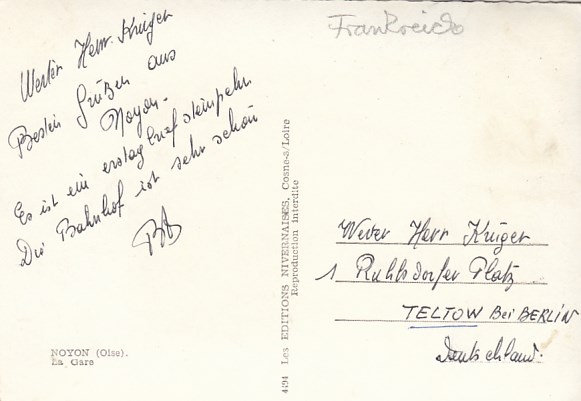 Frankreich
Werter Herr Krüger
Besten Grüßen aus
Noyon.
Es ist ein
Die Bahnhof ist sehr schön
4194 Les EDITIONS NIVERNAISES, Cosne-s/Loire
Reproduction interdite
Herr Krüger
1 Ruhlsdorfer Platz
TELTOW Bei BERLIN
Deutschland.
NOYON (Oise).
La Gare